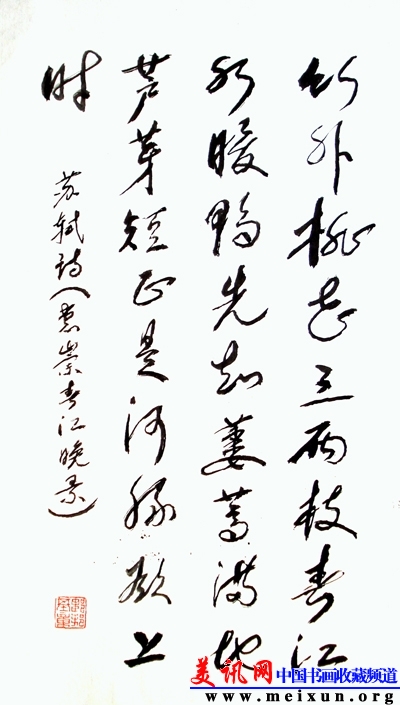 竹外桃花三两枝春江
水暖鸭先知蒌蒿满地
芦芽短正是河豚欲上
时
苏轼诗《惠崇春江晚景》
美讯网 中国书画收藏频道
www.meixun.org